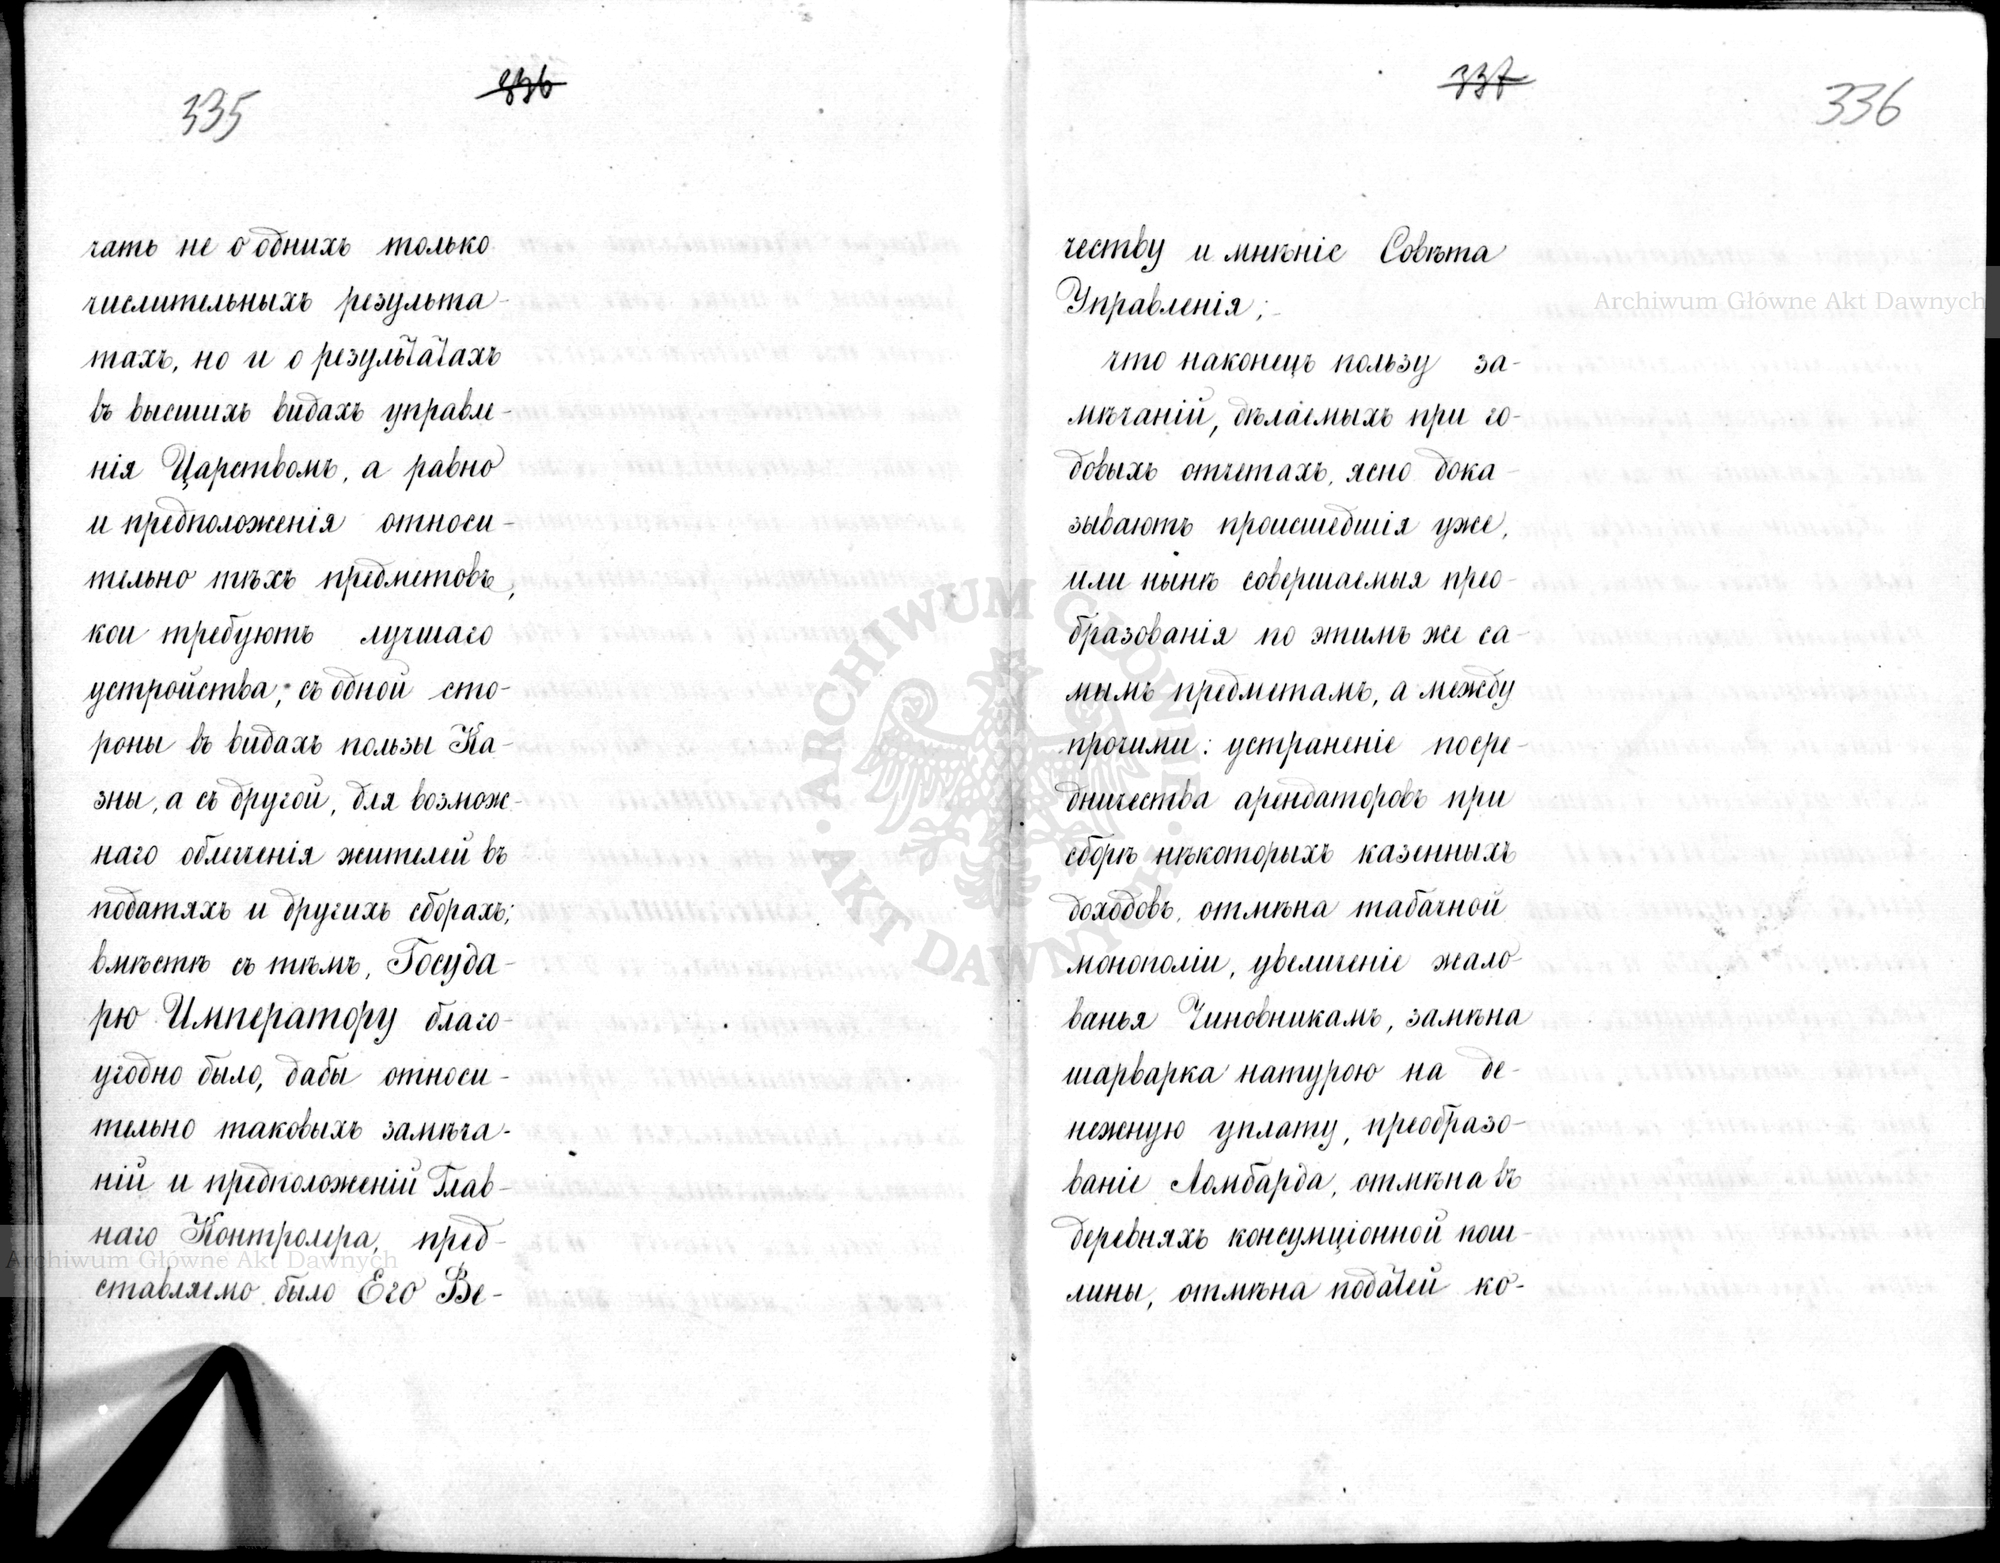 335
336
чать не о однихъ только
числительныхъ результа-
тахъ, но и о результатахъ
въ высшихъ видахъ управле-
нія Царствомъ, а равно
и предположенія относи-
тельно тѣхъ предметовъ,
кои требуютъ лучшаго
устройства; съ одной сто-
роны въ видахъ пользы Ка-
зны, а съ другой, для возмож-
наго облегченія жителей въ
податяхъ и другихъ сборахъ;
вмѣстѣ съ тѣмъ, Госуда-
рю Императору благо-
угодно было, дабы относи-
тельно таковыхъ замѣча-
ній и предположеній Глав-
наго Контролера, пред-
ставляемо было Его Ве-
337
336
честву и мнѣніе Совѣта
Управленія;
что наконецъ пользу за-
мѣчаній, дѣлаемыхъ при го-
довыхъ отчетахъ, ясно дока-
зываютъ происшедшія уже,
или нынѣ совершаемыя прео-
бразованія по этимъ же са-
мымъ предметамъ, а между
прочими: устраненіе посре-
дничества арендаторовъ при
сборѣ нѣкоторыхъ казенныхъ
доходовъ, отмѣна табачной
монополіи, увеличеніе жало-
ванья Чиновникамъ, замѣна
шарварка натурою на де-
нежную уплату, преобразо-
ваніе Ломбарда, отмѣна въ
деревняхъ консумціонной пош-
лины, отмѣна податей ко-
Archiwum Główne Akt Dawnych
Archiwum Główne Akt Dawnych
ARCHIWUM GŁÓWNE
AKT DAWNYCH